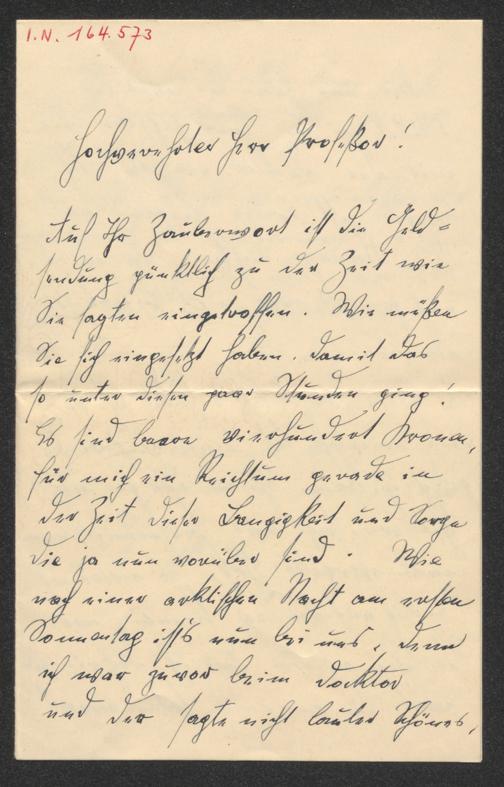 I.N. 164.573
Hochverehrter Herr Profeßor!
Auf Ihr Zauberwort ist die Geld-
sendung pünktlich zu der Zeit wie
Sie sagten eingetroffen. Wie müßen
Sie sich eingesetzt haben. damit das
so unter diesen paar Stunden ging!
Es sind baare vierhundert Kronen,
für mich ein Reichtum gerade in
der Zeit dieser Bangigkeit und Sorge
die ja nun vorüber sind. Wie
nach einer arktischen Nacht am ersten
Sonnentag ist's nun bei uns, denn
ich war zuvor beim Docktor
und der sagte nicht lauter Schönes,